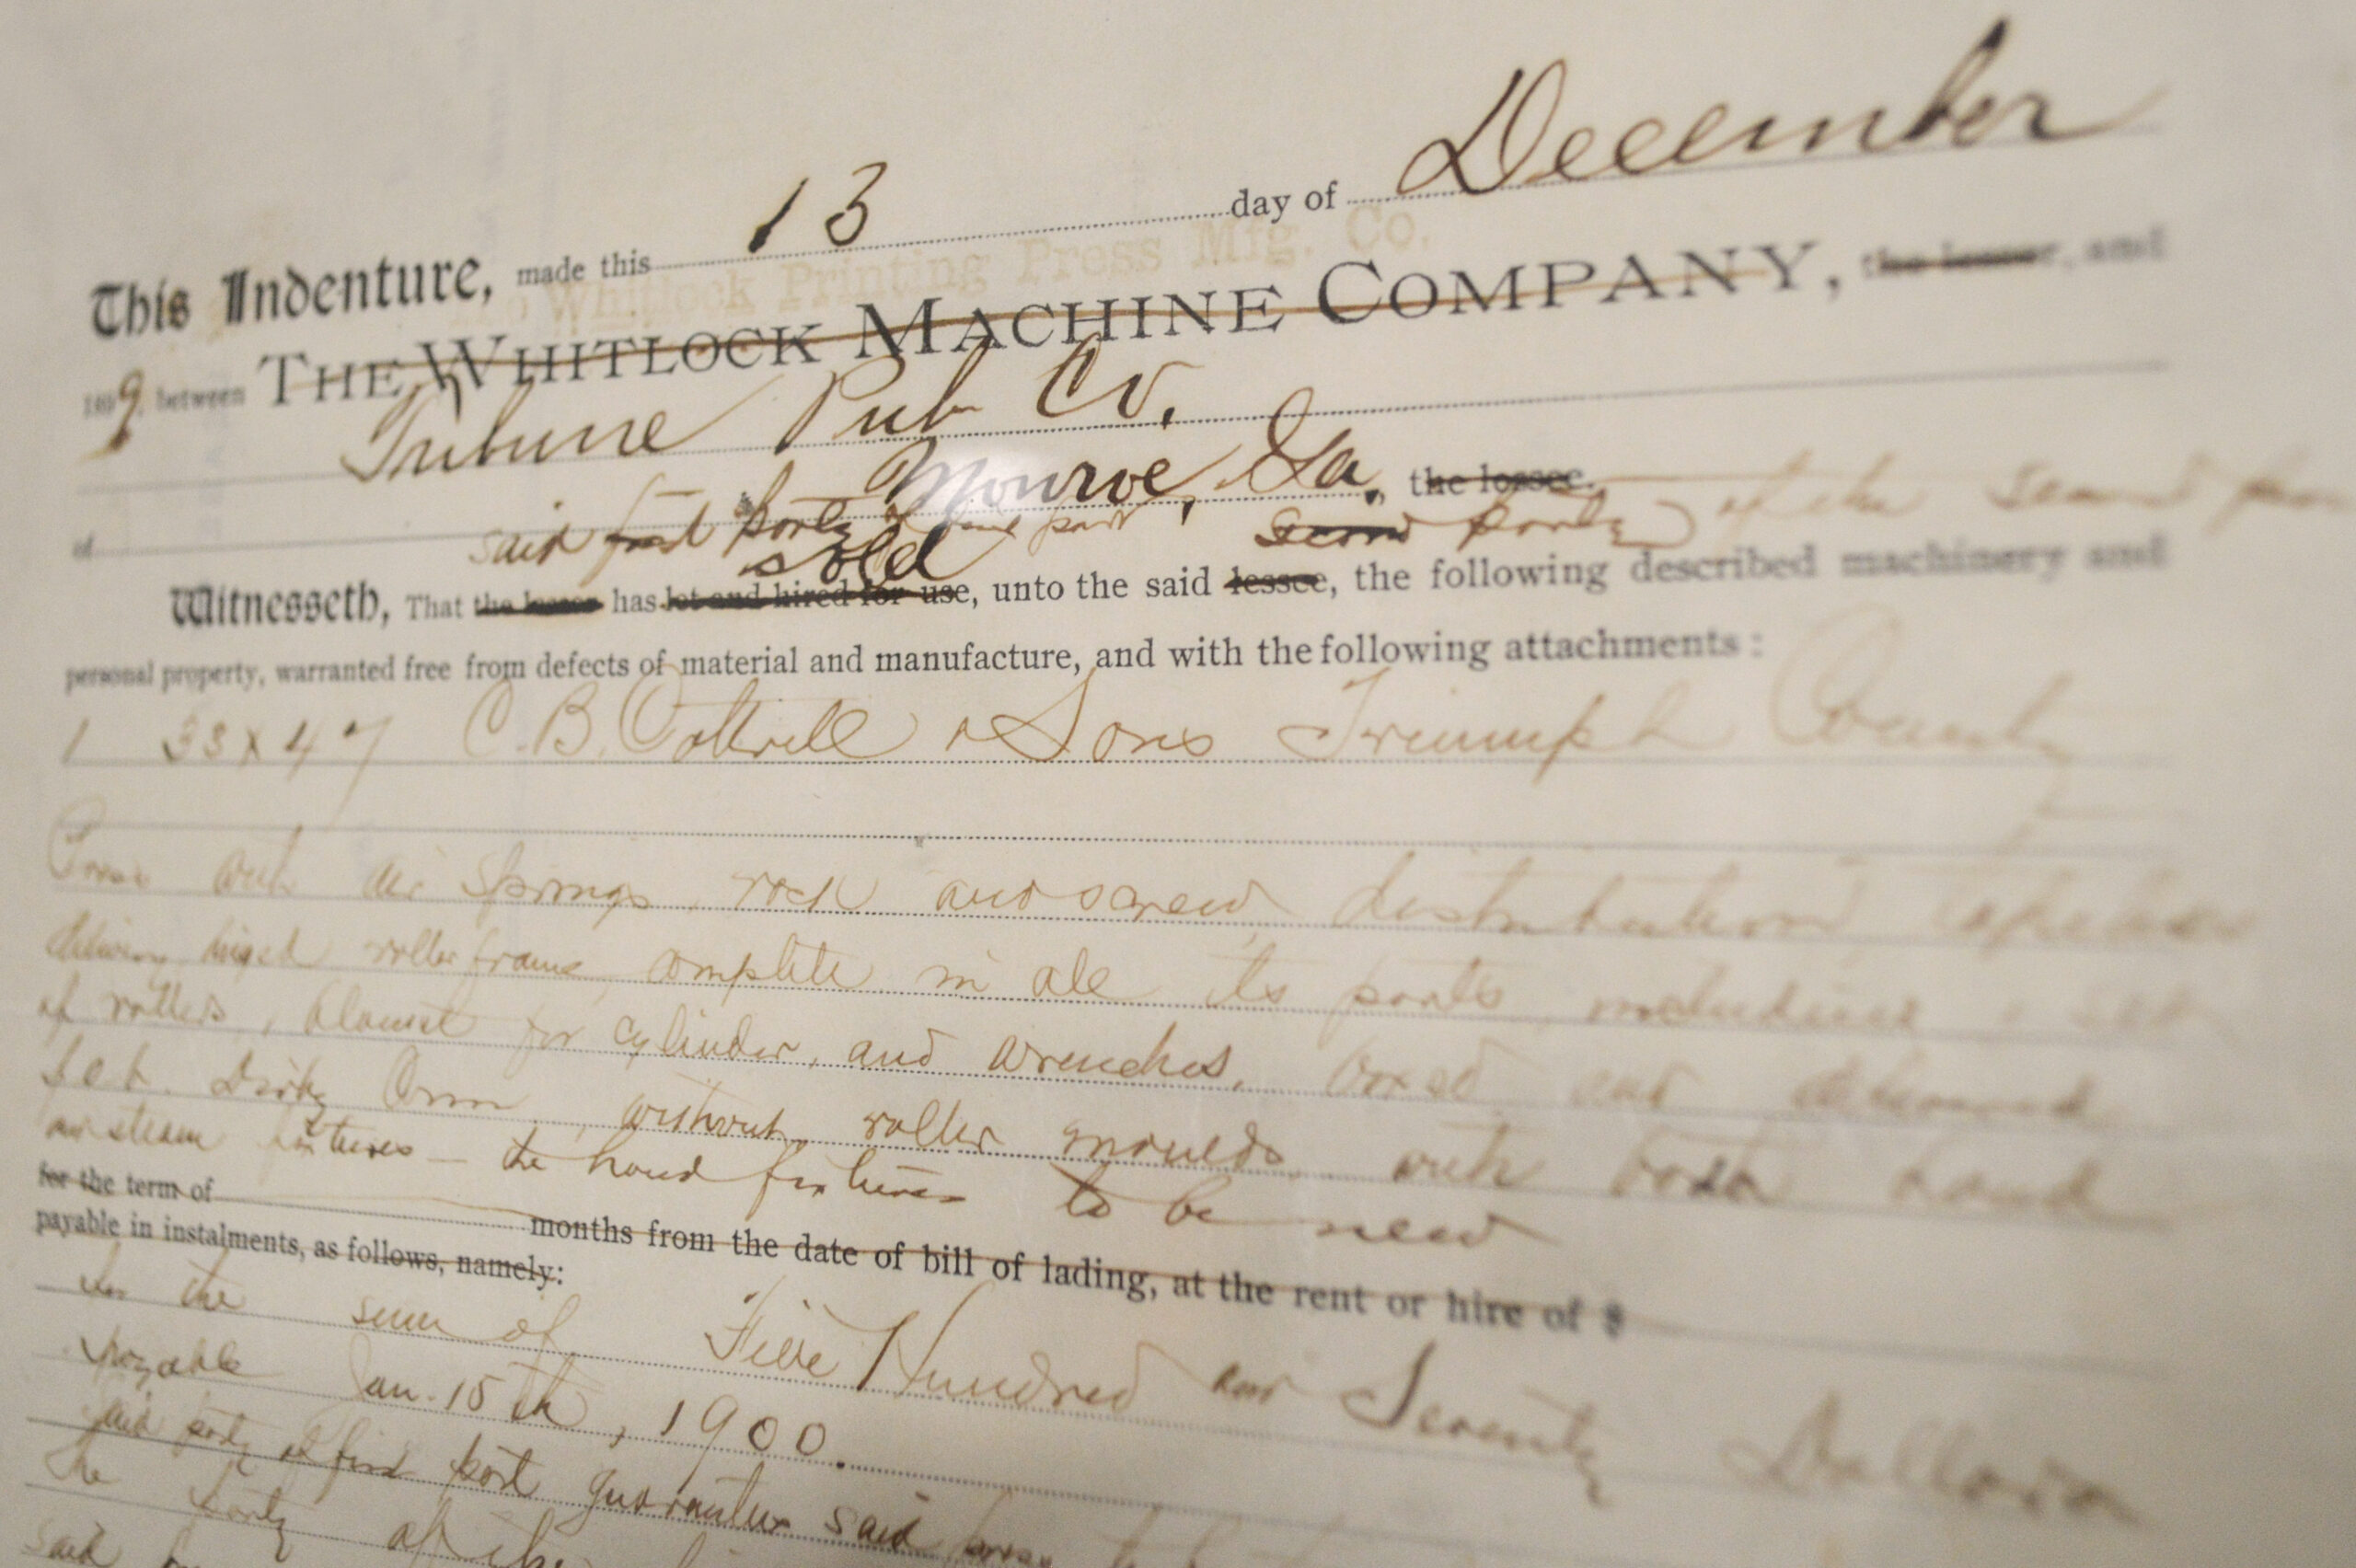 This Indenture, made this 13 day of December
Whitlock Printing Press Mfg. Co.
1899, between THE WHITLOCK MACHINE COMPANY, the lessor, and
Tribune Pub Co.
of Monroe, Ga., the lessee. party of the second
said first party of first part second
sold
Witnesseth, That the lessor has let and hired for use, unto the said lessee, the following described machinery and
personal property, warranted free from defects of material and manufacture, and with the following attachments:
1 33 x 47 C. B. Cottrell & Sons Triumph Country
Press with air springs, rack and screw distribution, tapeless
delivery, hinged roller frame, complete in all its parts, including 1 set
of rollers, blanket for cylinder, and wrenches, boxed and delivered
f.o.b. without roller moulds, with both hand
steam fixtures — the hand fixtures to be new
for the term of months from the date of bill of lading, at the rent or hire of $
payable in instalments, as follows, namely:
for the sum of Five Hundred and Seventy Dollars
payable Jan. 15th, 1900.
said party of first part guarantees said press
the party of the
said